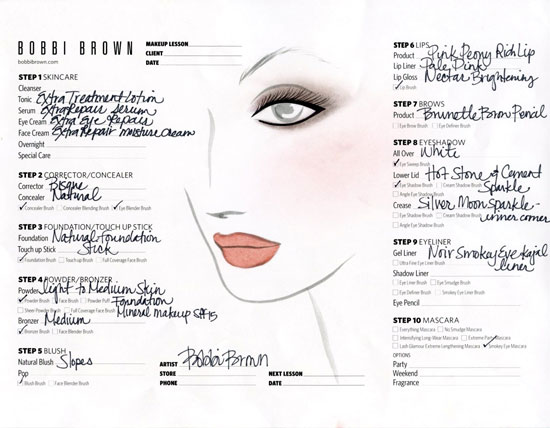 BOBBI BROWN
bobbibrown.com
MAKEUP LESSON
CLIENT
DATE
STEP 1 SKINCARE
Cleanser
Tonic Extra Treatment Lotion
Serum Extra Repair Serum
Eye Cream Extra Eye Repair
Face Cream Extra Repair moisture cream
Overnight
Special Care
STEP 2 CORRECTOR/CONCEALER
Corrector Bisque
Concealer Natural
Concealer Brush Concealer Blending Brush Eye Blender Brush
STEP 3 FOUNDATION/TOUCH UP STICK
Foundation Natural foundation
Touch up Stick Stick
Foundation Brush Touch up Brush Full Coverage Face Brush
STEP 4 POWDER/BRONZER
Powder light to Medium Skin
Powder Brush Face Brush Powder Puff Foundation
Sheer Powder Brush Full Coverage Face Brush Mineral makeup SPF 15
Bronzer Medium
Bronzer Brush Face Blender Brush
STEP 5 BLUSH
Natural Blush Slopes
Pop
Blush Brush Face Blender Brush
ARTIST Bobbi Brown
STORE
PHONE
NEXT LESSON
DATE
STEP 6 LIPS
Product Pink Peony Rich Lip
Lip Liner Pale Pink
Lip Gloss Nectar Brightening
Lip Brush
STEP 7 BROWS
Product Brunette Brow Pencil
Eye Brow Brush Eye Definer Brush
STEP 8 EYESHADOW
All Over White
Eye Sweep Brush
Lower Lid Hot Stone & Cement
Eye Shadow Brush Cream Shadow Brush Sparkle
Angle Eye Shadow Brush
Crease Silver Moon Sparkle-
Eye Shadow Brush Cream Shadow Brush inner corner
Angle Eye Shadow Brush
STEP 9 EYELINER
Gel Liner Noir Smokey Eye Kajal
Ultra Fine Eye Liner Brush liner
Shadow Liner
Eye Liner Brush Eye Smudge Brush
Eye Definer Brush Smokey Eye Liner Brush
Eye Pencil
STEP 10 MASCARA
Everything Mascara No Smudge Mascara
Intensifying Long-Wear Mascara Extreme Party Mascara
Lash Glamour Extreme Lengthening Mascara Smokey Eye Mascara
OPTIONS
Party
Weekend
Fragrance